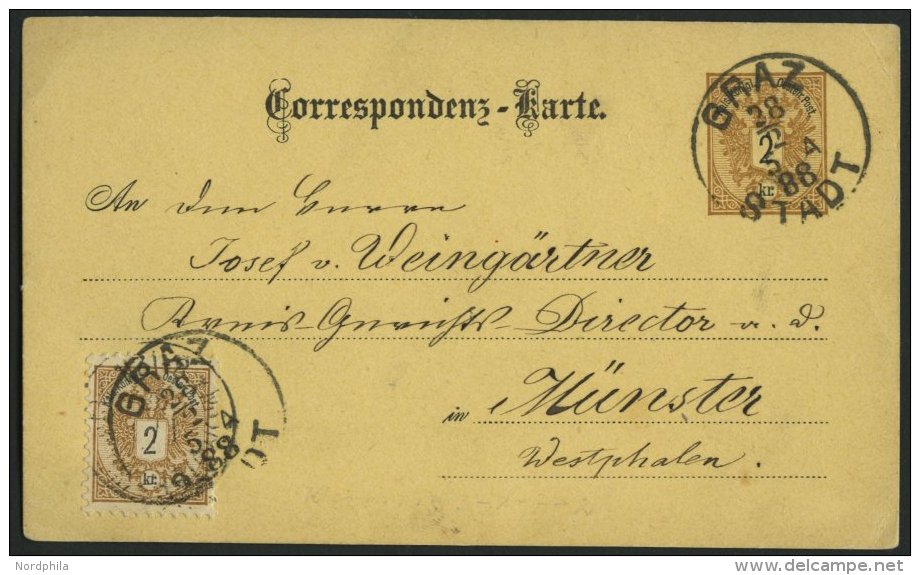 Correspondenz-Karte.
GRAZ
STADT
28
2
5
4
88
2
kr.
An den Herrn
Josef v. Weingärtner
Kreis-Gerichts-Director a. d.
in Münster
Westphalen.
GRAZ
4
88
2
kr.
Nordphila
www.delcampe.net